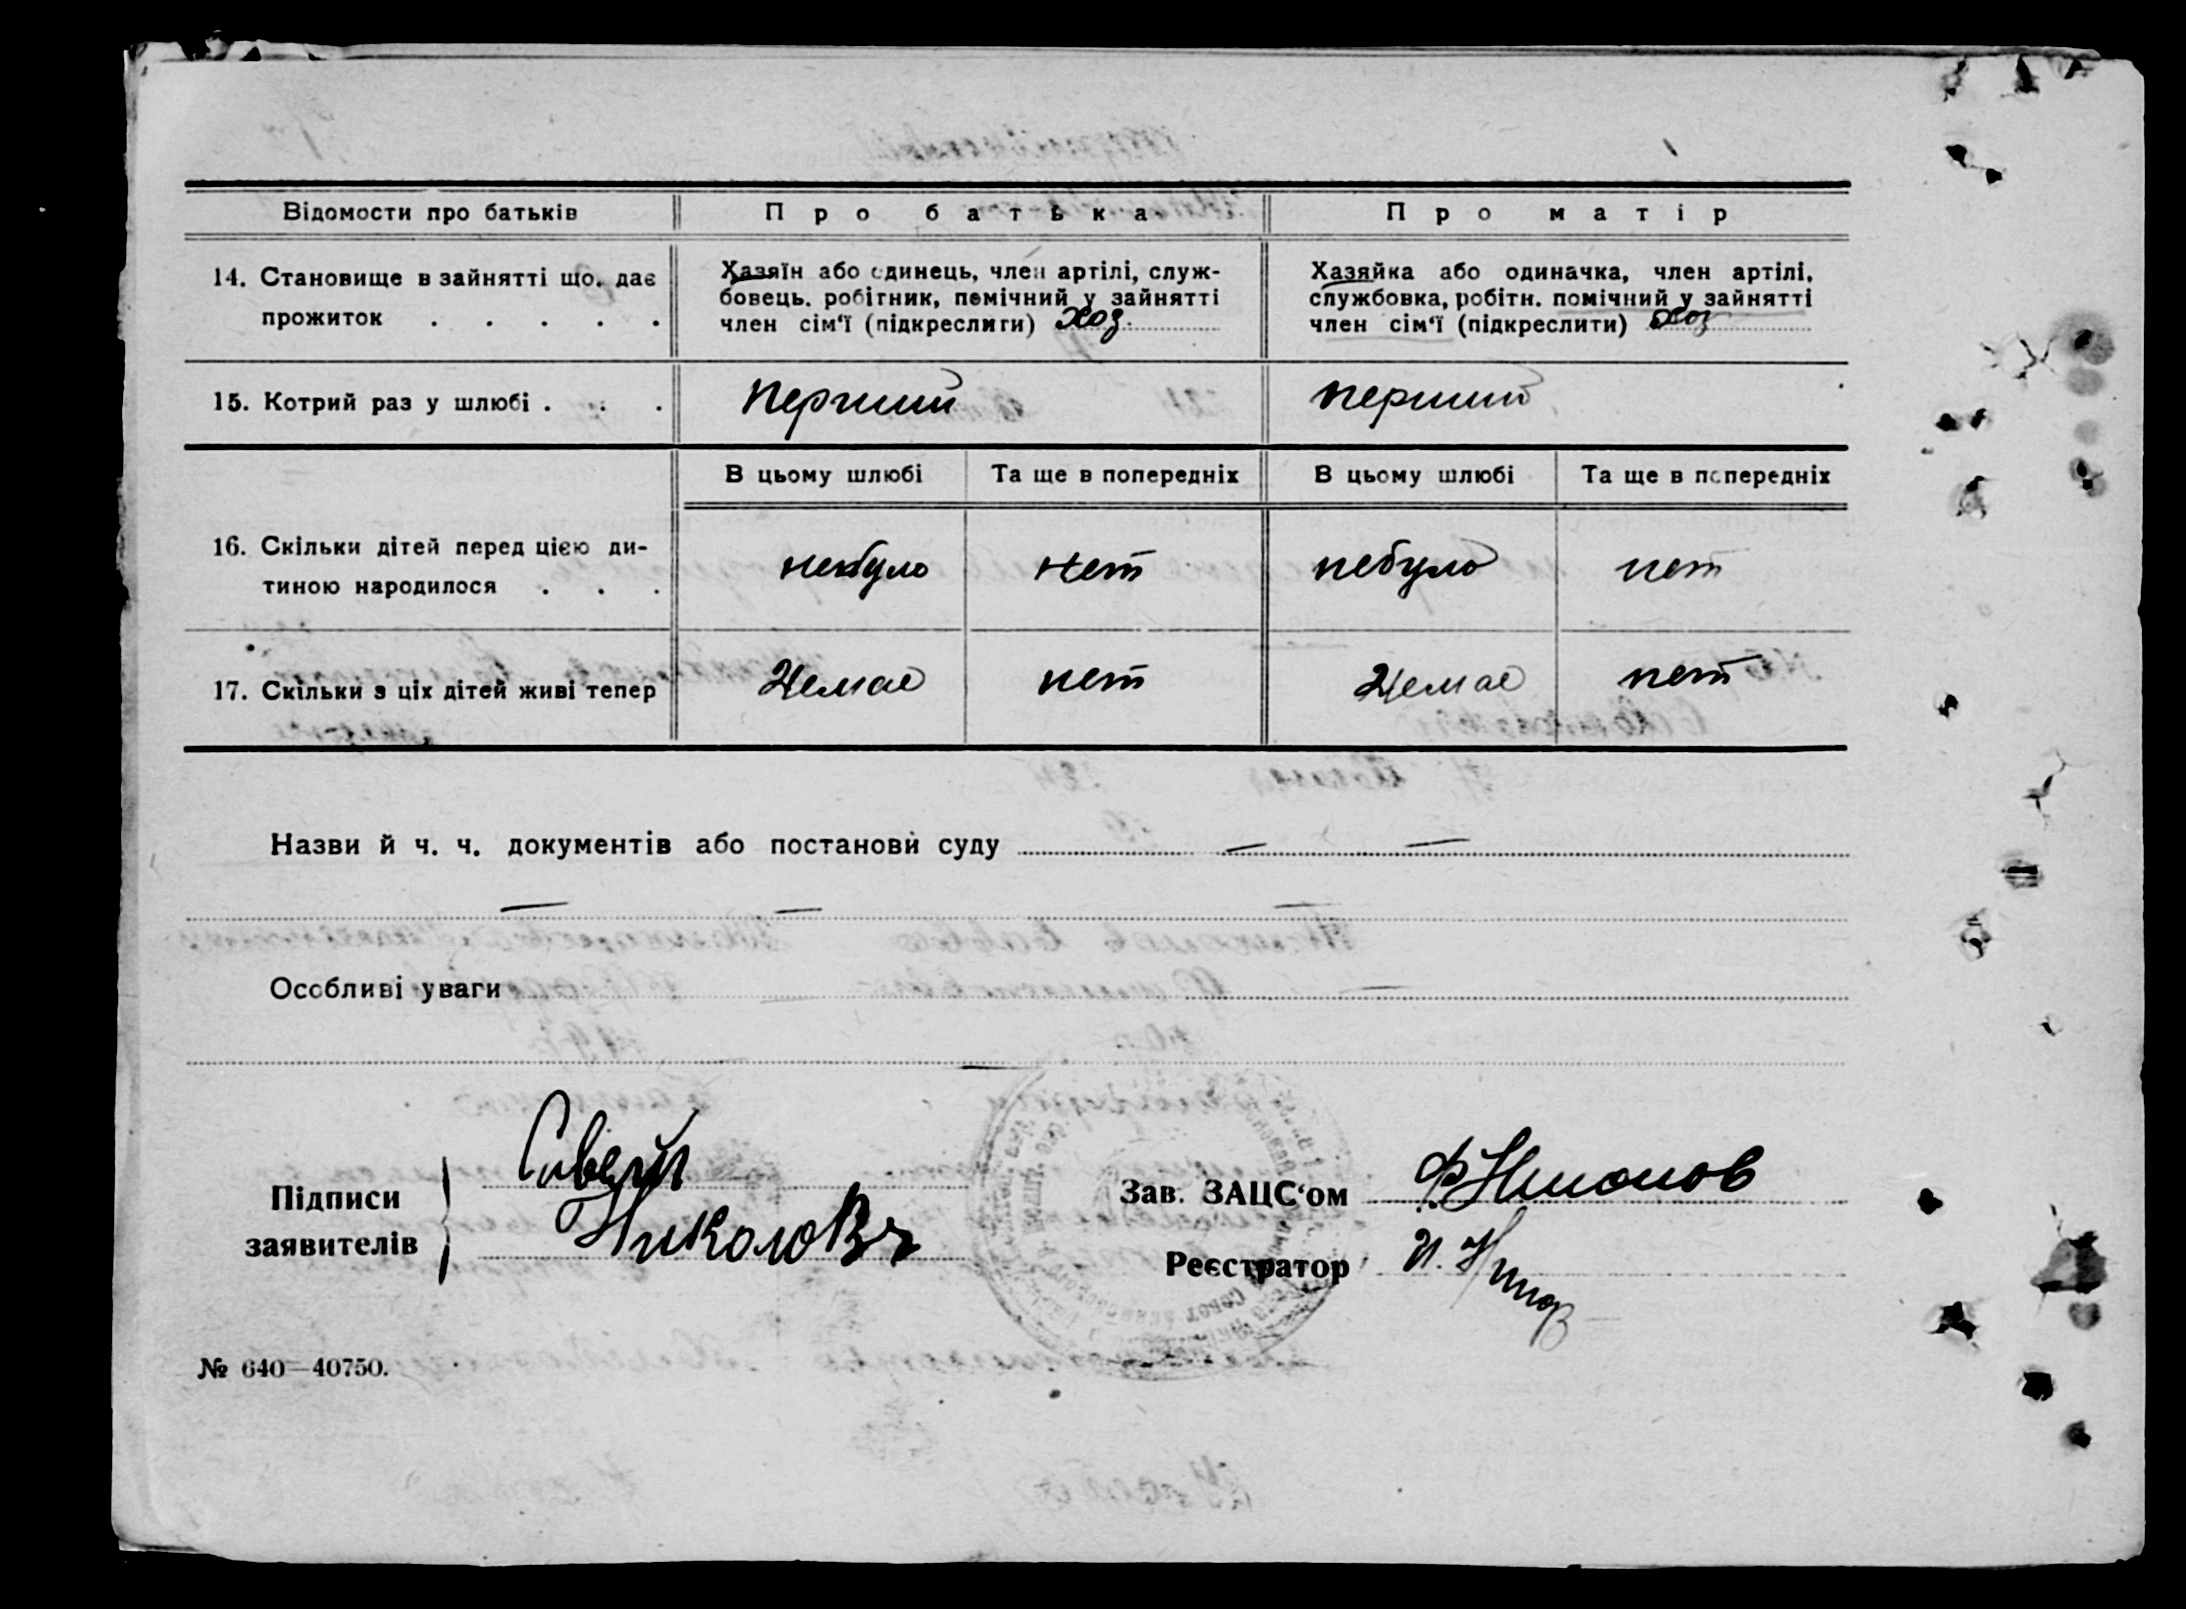 Відомости про батьків Про батька Про матір
14. Становище в зайнятті що дає прожиток . . . . .
Хазяїн або одинець, член артілі, служ-
бовець, робітник, помічний у зайнятті
член сім'ї (підкреслити) Хоз.
Хазяйка або одиначка, член артілі,
службовка, робітн. помічний у зайнятті
член сім'ї (підкреслити) Хоз
15. Котрий раз у шлюбі . . . перший перший
В цьому шлюбі Та ще в попередніх В цьому шлюбі Та ще в попередніх
16. Скільки дітей перед цією ди-
тиною народилося . . . небуло нет небуло нет
17. Скільки з ціх дітей живі тепер Немае нет Немае нет
Назви й ч. ч. документів або постанови суду — —
— — —
Особливі уваги —
—
Підписи
заявителів
Савели
Николовъ
Зав. ЗАЦС'ом
Реєстратор
№ 640—40750.